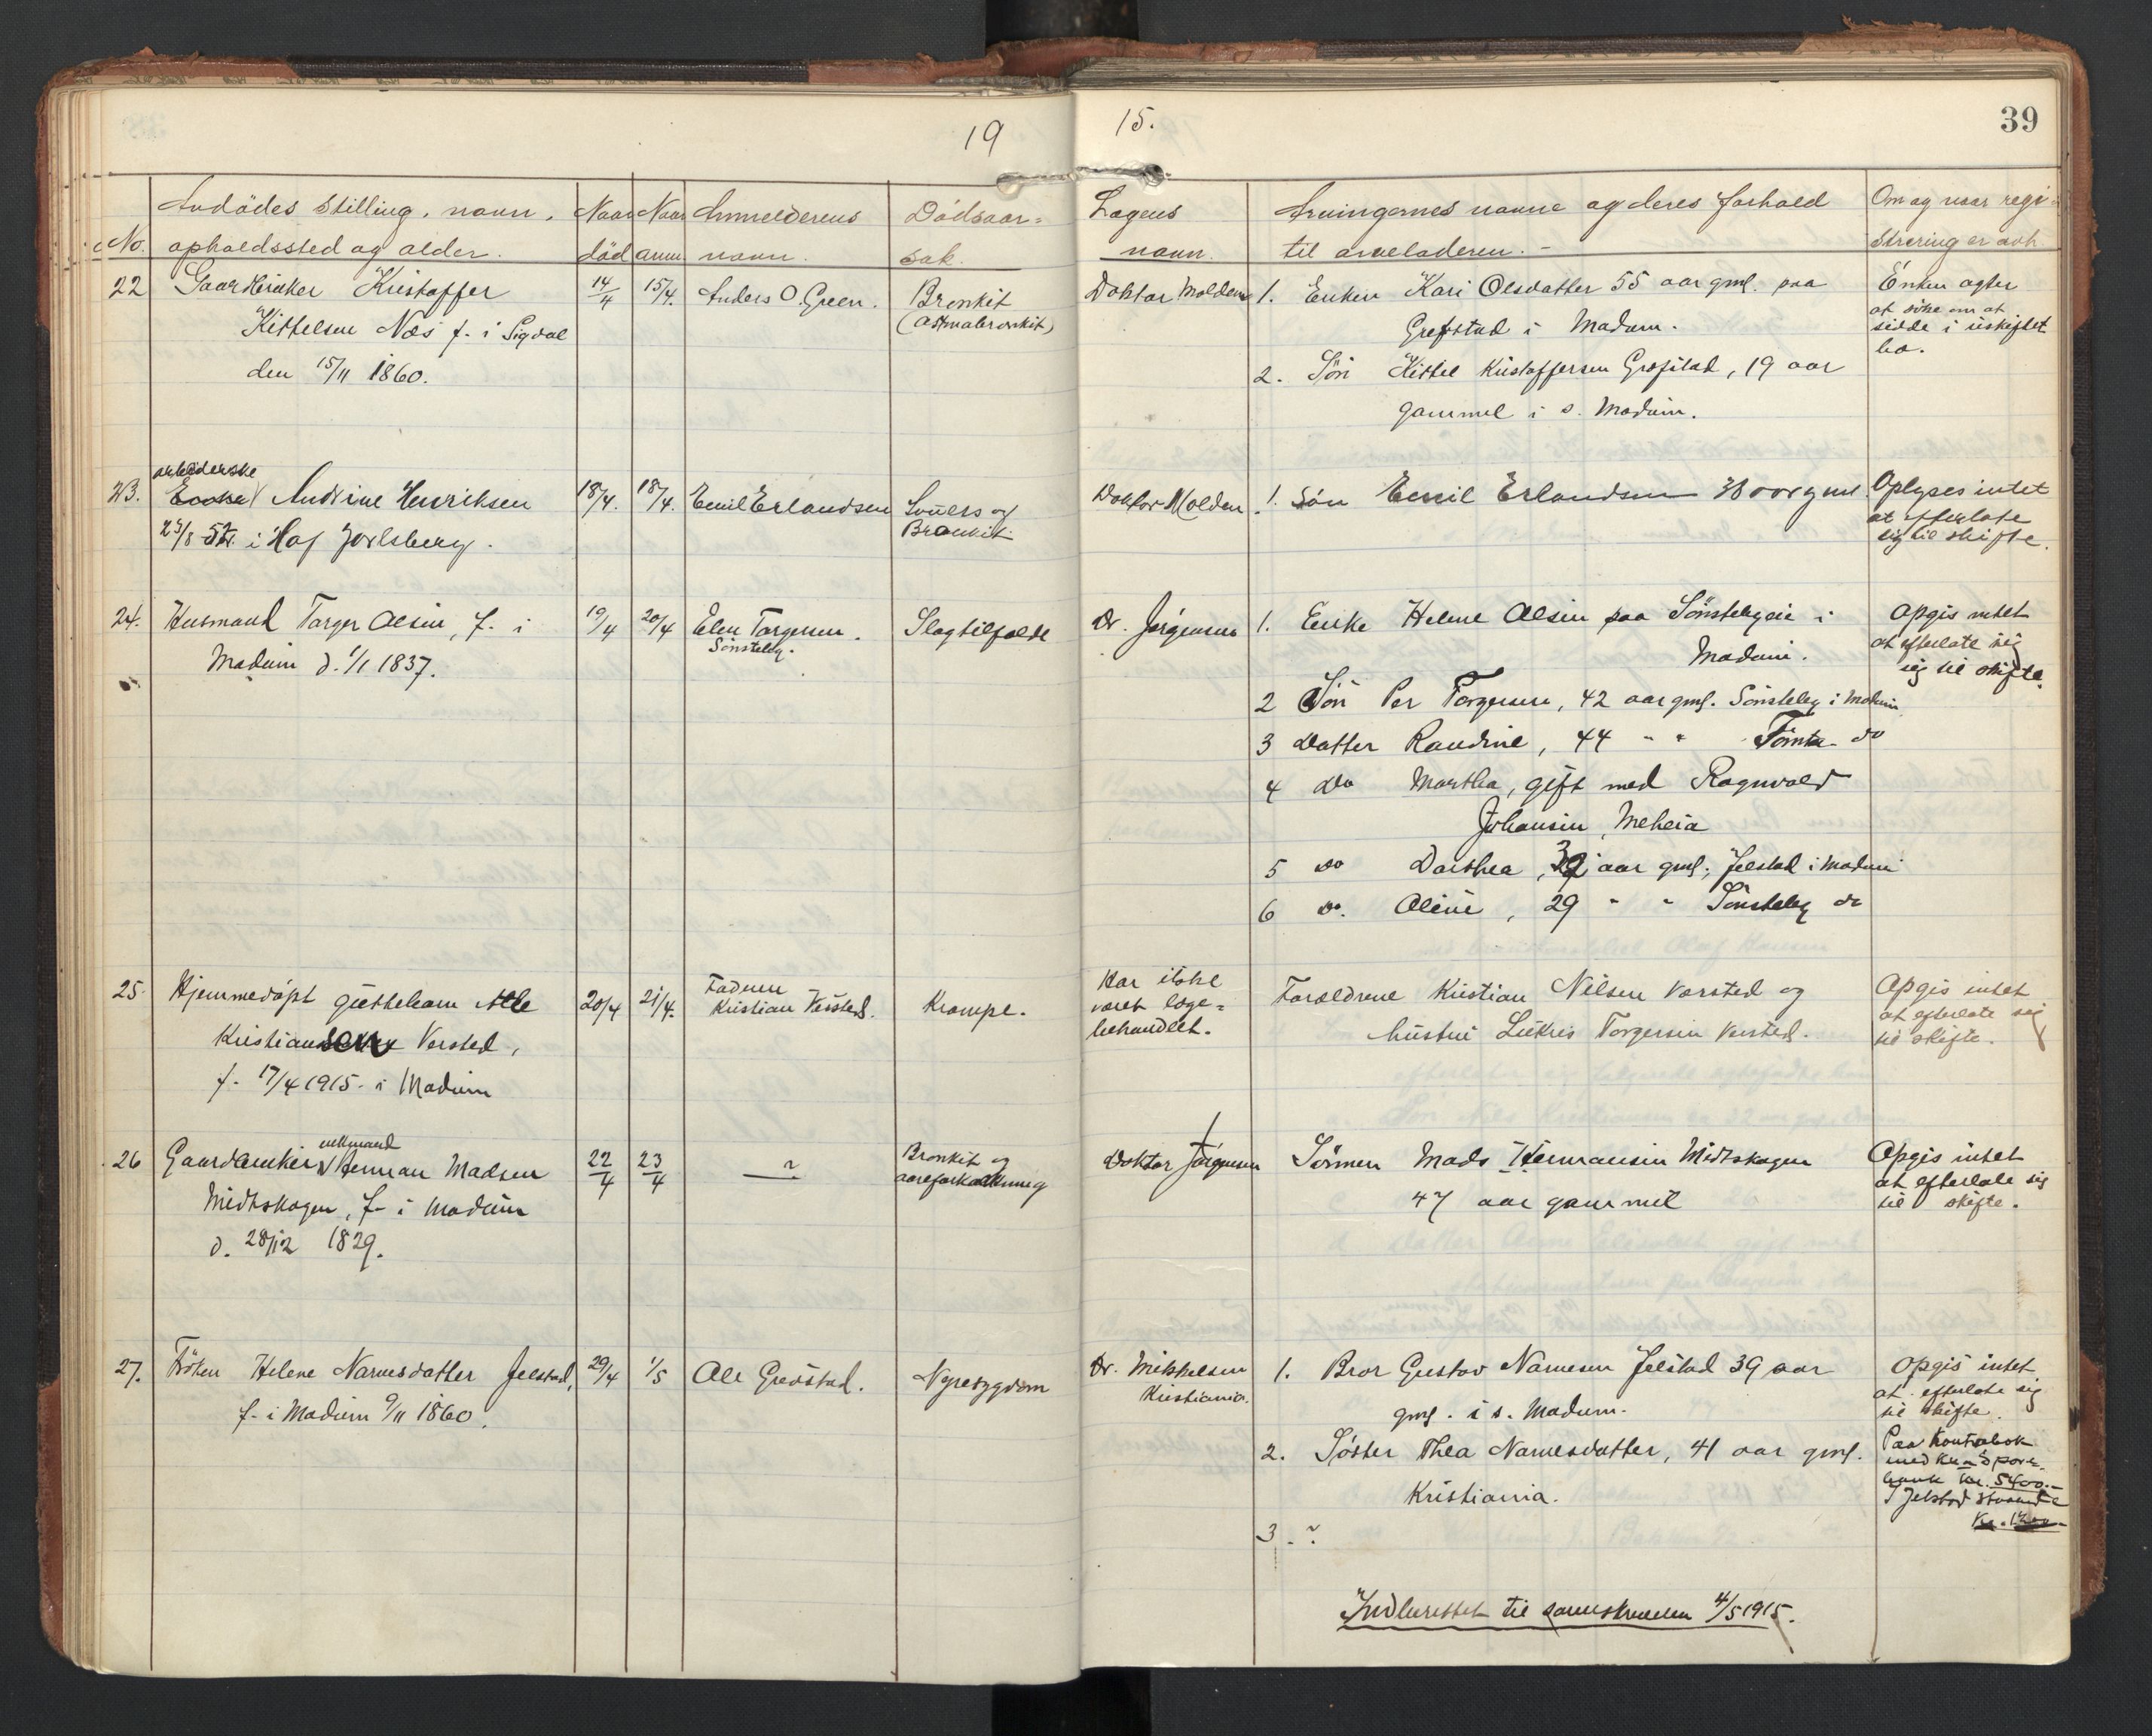 19 15. 39
No. Avdödes stilling, navn, opholdssted og alder. Naar död Naar anm. Anmelderens navn. Dödsaar-sak. Lægens navn. Arvingernes navne og deres forhold til arveladeren. Om og naar regi-strering er avh.
22 Gaardbruker Kristoffer 14/4 15/4. Anders O. Green. Bronkit Doktor Molden 1. Enken Kari Olsdatter 55 aar gml. paa Enken agter
Kittelsen Næs f. i Sigdal (astmabronkit) Grefstad i Modum. at söke om at
den 15/11 1860. sidde i uskiftet
bo.
2. Sön Kittel Kristoffersen Grefstad, 19 aar
gammel i s. Modum.
arbeiderske
23. Enke Andrine Henriksen 18/4. 18/4. Emil Erlandsen og Doktor Molden 1. Sön Emil Erlandsen 38 aar gml. Oplyses intet
23/8 52. i Hof Jarlsberg. Bronkit. at efterlate
sig til skifte.
24. Husmand Torger Olsen, f. i 19/4 20/4 Elen Torgersen. Slagtilfælde Dr. Jörgensen 1. Enke Helene Olsen paa Sönstebyeie i Opgis intet
Modum d. 1/1 1837. Sönsteby. Modum. at efterlate sig
sig til skifte.
2 Sön Per Torgersen, 42 aar gml. Sönsteby i Modum
3 Datter Randine, 44 " " Tömta do
4 Do Martha, gift med Ragnvald
Johansen, Meheia
5 do Dorthea, 32 aar gml., Jelstad i Modum
6 do. Oline, 29 " " Sönsteby do
25. Hjemmedöpt guttebarn Atle 20/4 21/4. Faderen Krampe. Har ikke Forældrene Kristian Nilsen Versted og Opgis intet
Kristiansen Versted, Kristian Versted. været læge- hustru Torgersen Versted. at efterlate sig
f. 17/4 1915 i Modum behandlet. til skifte.
26 Gaardbruker enkmand Herman Madsen 22/4 23/4 ? Bronkit og Doktor Jörgensen Sönnen Mads Hermansen Midtskogen Opgis intet
Midtskogen, f. i Modum aareforkalkning 47 aar gammel at efterlate sig
d. 28/12 1829. til skifte.
27. Fröken Helene Narvesdatter Jelstad, 29/4 1/5 Ole Grevstad. Nyresygdom Dr. Mikkelsen 1. Bror Gustav Narvesen Jelstad 39 aar Opgis intet
f. i Modum 9/11 1860. Kristiania. gml. i s. Modum. at efterlate sig
til skifte.
2. Söster Thea Narvesdatter, 41 aar gml. Paa Kontrabok
Kristiania. med Kr.a Spare-
bank kr. 5400.-
I Jelstad staaende
kr. 1200.-
3. ?
Indberettet til sorenskriveren 4/5 1915.